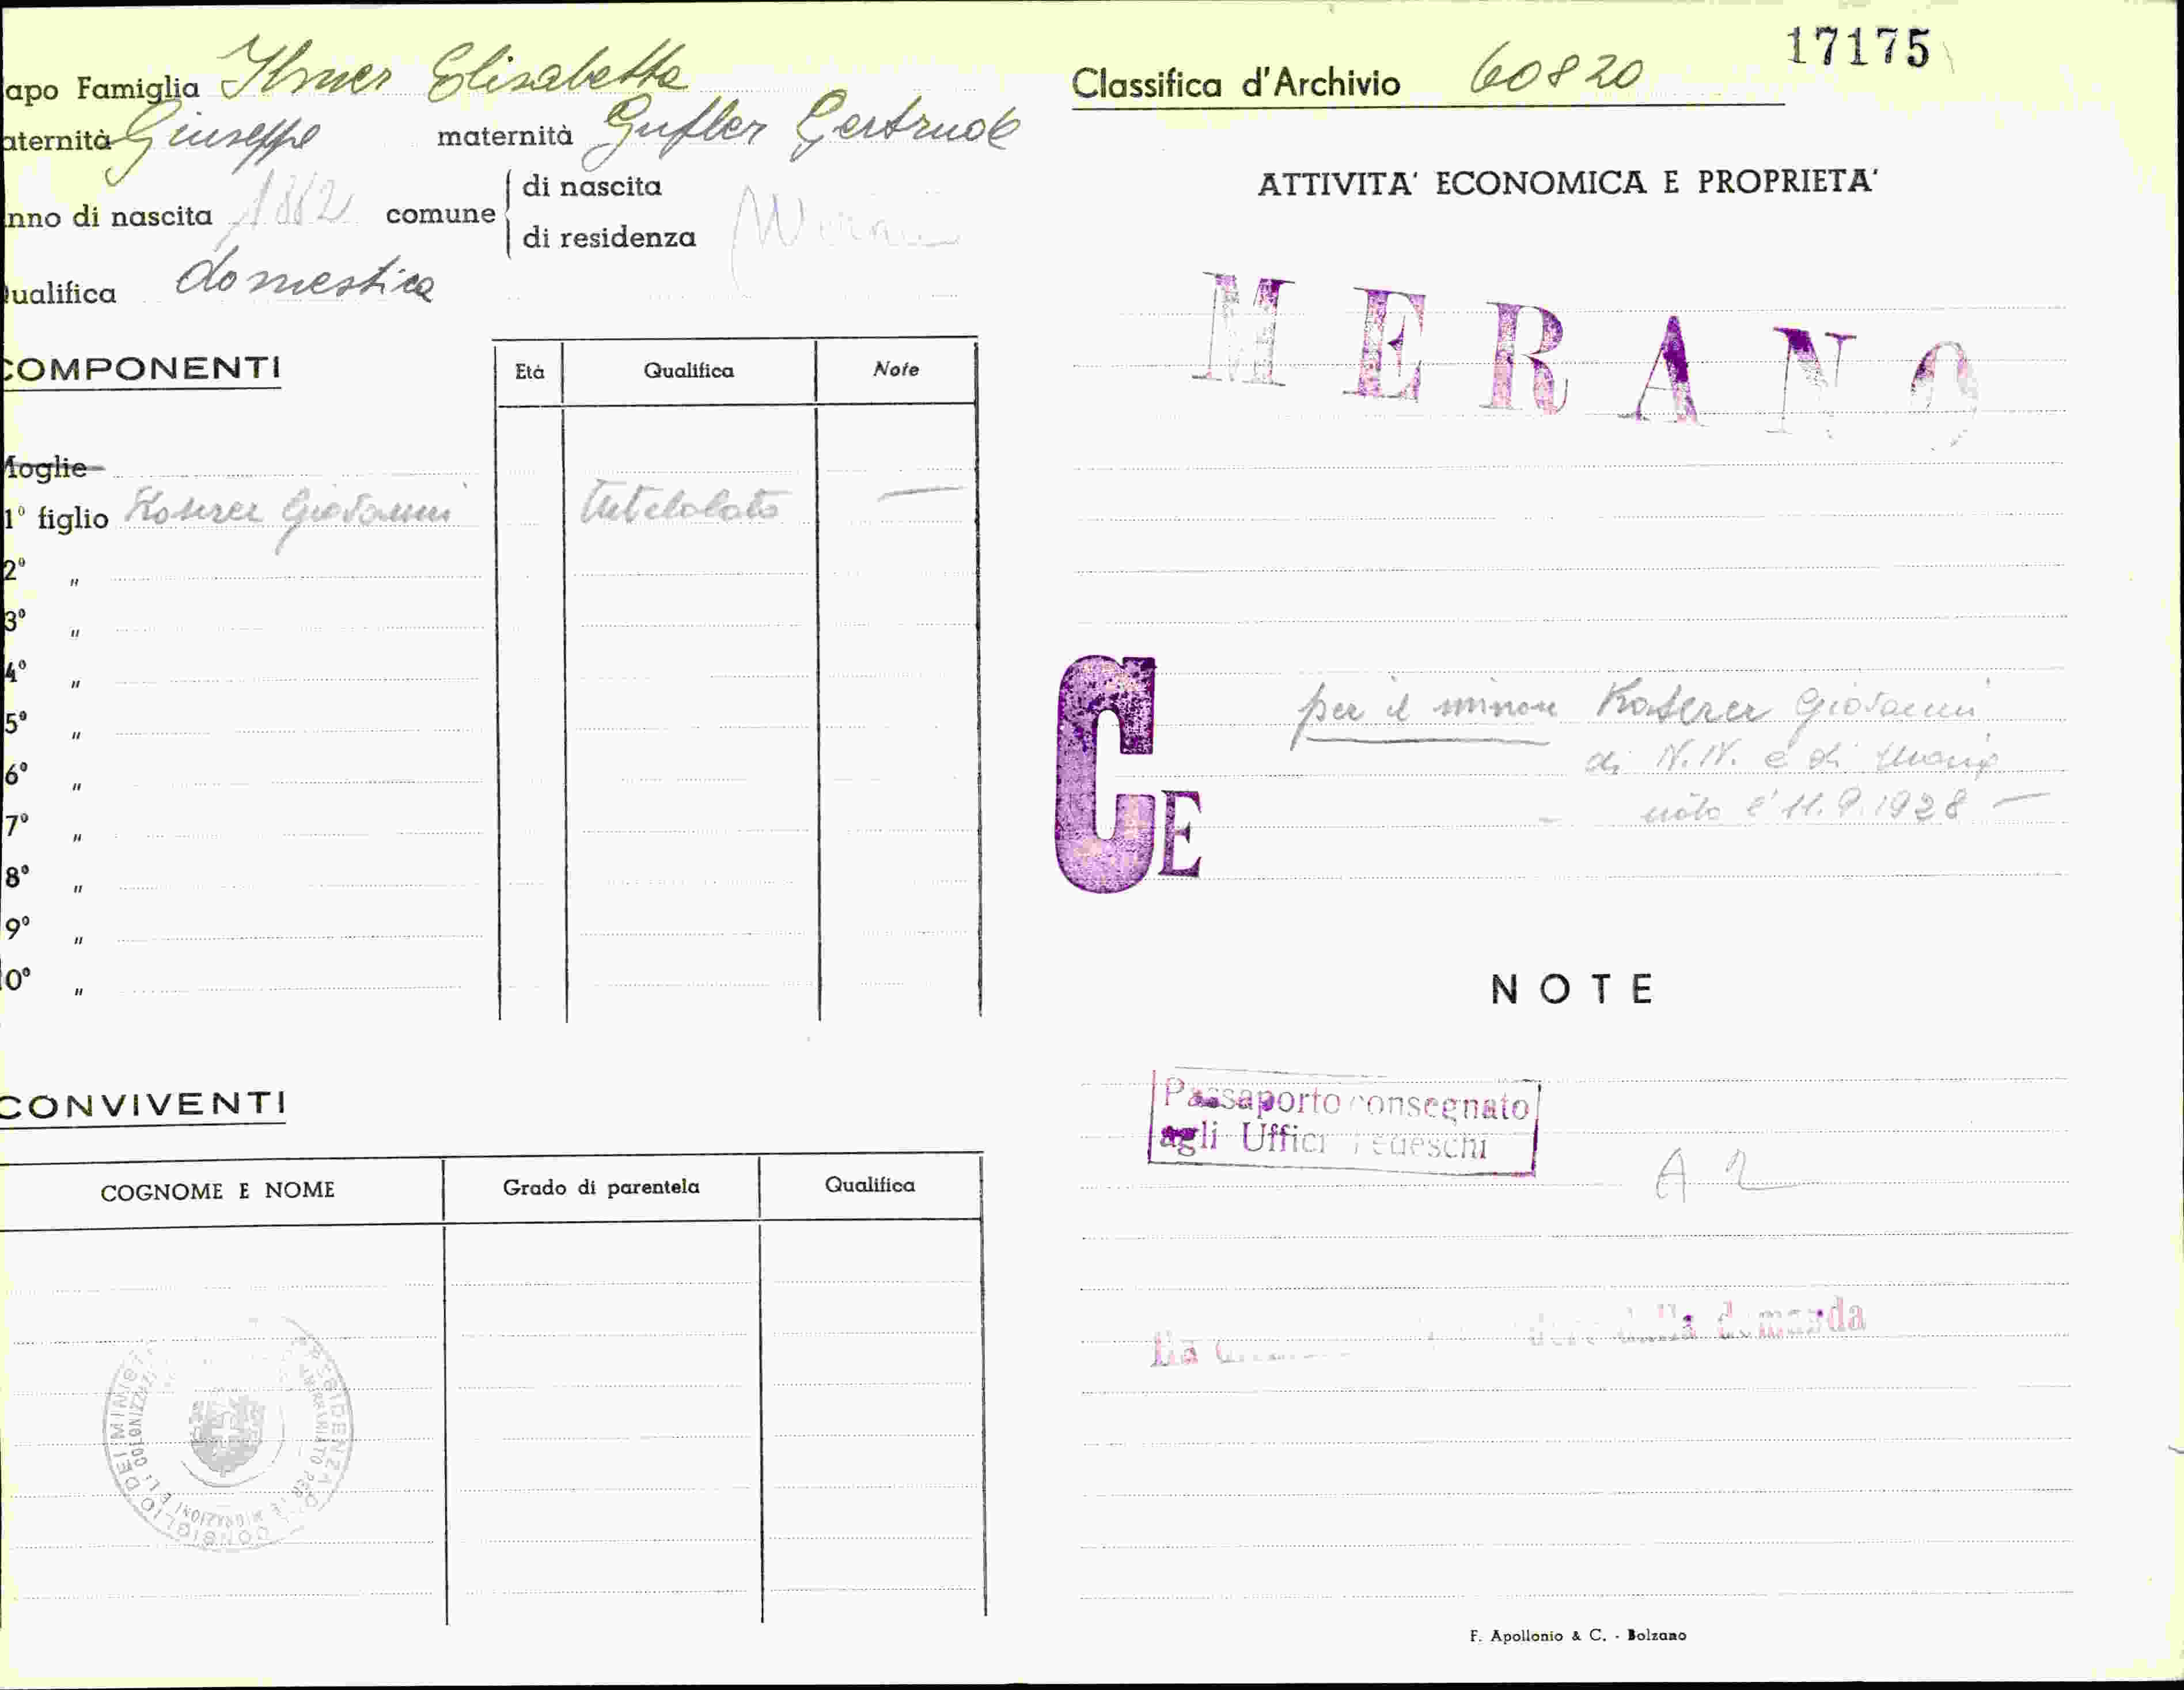 apo Famiglia Ilmer Elisabetta
aternità Giuseppe maternità Gufler Gertrude
nno di nascita 1882 comune di nascita
di residenza Merano
ualifica domestica
COMPONENTI
Età Qualifica Note
Moglie
1° figlio Kaserer Giovanni Tutelato —
2° "
3° "
4° "
5° "
6° "
7° "
8° "
9° "
0° "
CONVIVENTI
COGNOME E NOME Grado di parentela Qualifica
17175
Classifica d'Archivio 60820
ATTIVITA' ECONOMICA E PROPRIETA'
MERANO
CE
per il minore Kaserer Giovanni
di N.N. e di Maria
- nato l'11.9.1928 —
NOTE
Passaporto consegnato
agli Uffici Tedeschi
A 2
Ha dalla domanda
F. Apollonio & C. - Bolzano